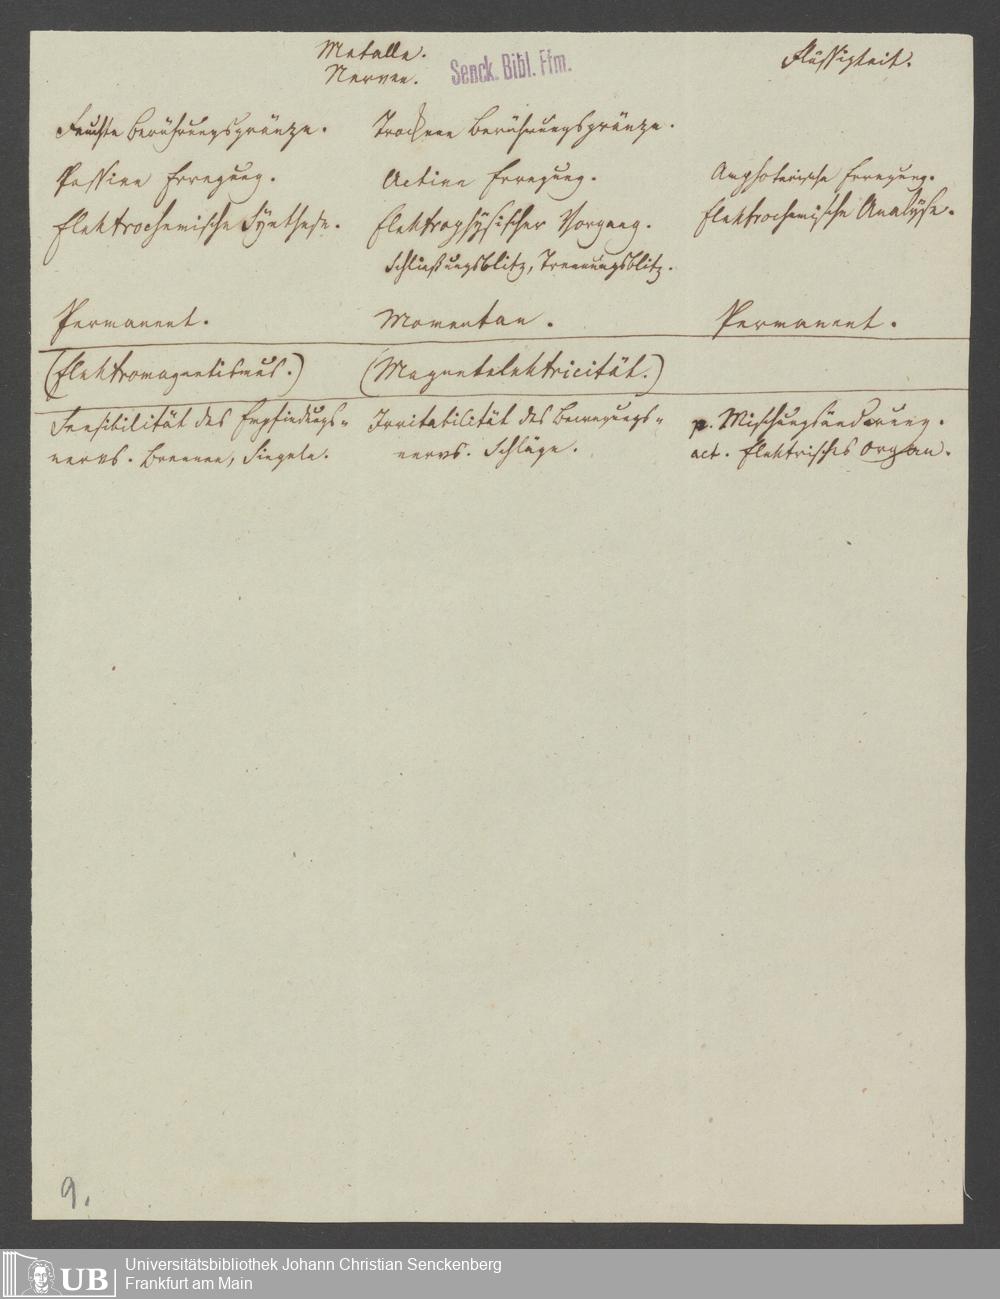 Metalle.
Nerven.
Senck. Bibl. Ffm.
Flüssigkeit.
Feuchte Berührungsgränze.
Trockene Berührungsgränze.
Passive Erregung.
Active Erregung.
Amphoterische Erregung.
Elektrochemische Synthese.
Elektrophysischer Vorgang.
Elektrochemische Analyse.
Schließungsblitz, Trennungsblitz.
Permanent.
Momentan.
Permanent.
(Elektromagnetismus.)
(Magnetelektricität.)
Sensibilität des Empfindungs-
Irritabilität des Bewegungs-
p. Mischungsänderung.
nervs. Brennen,
nervs. Schläge.
act. Elektrisches Organ.
9.
UB
Universitätsbibliothek Johann Christian Senckenberg
Frankfurt am Main